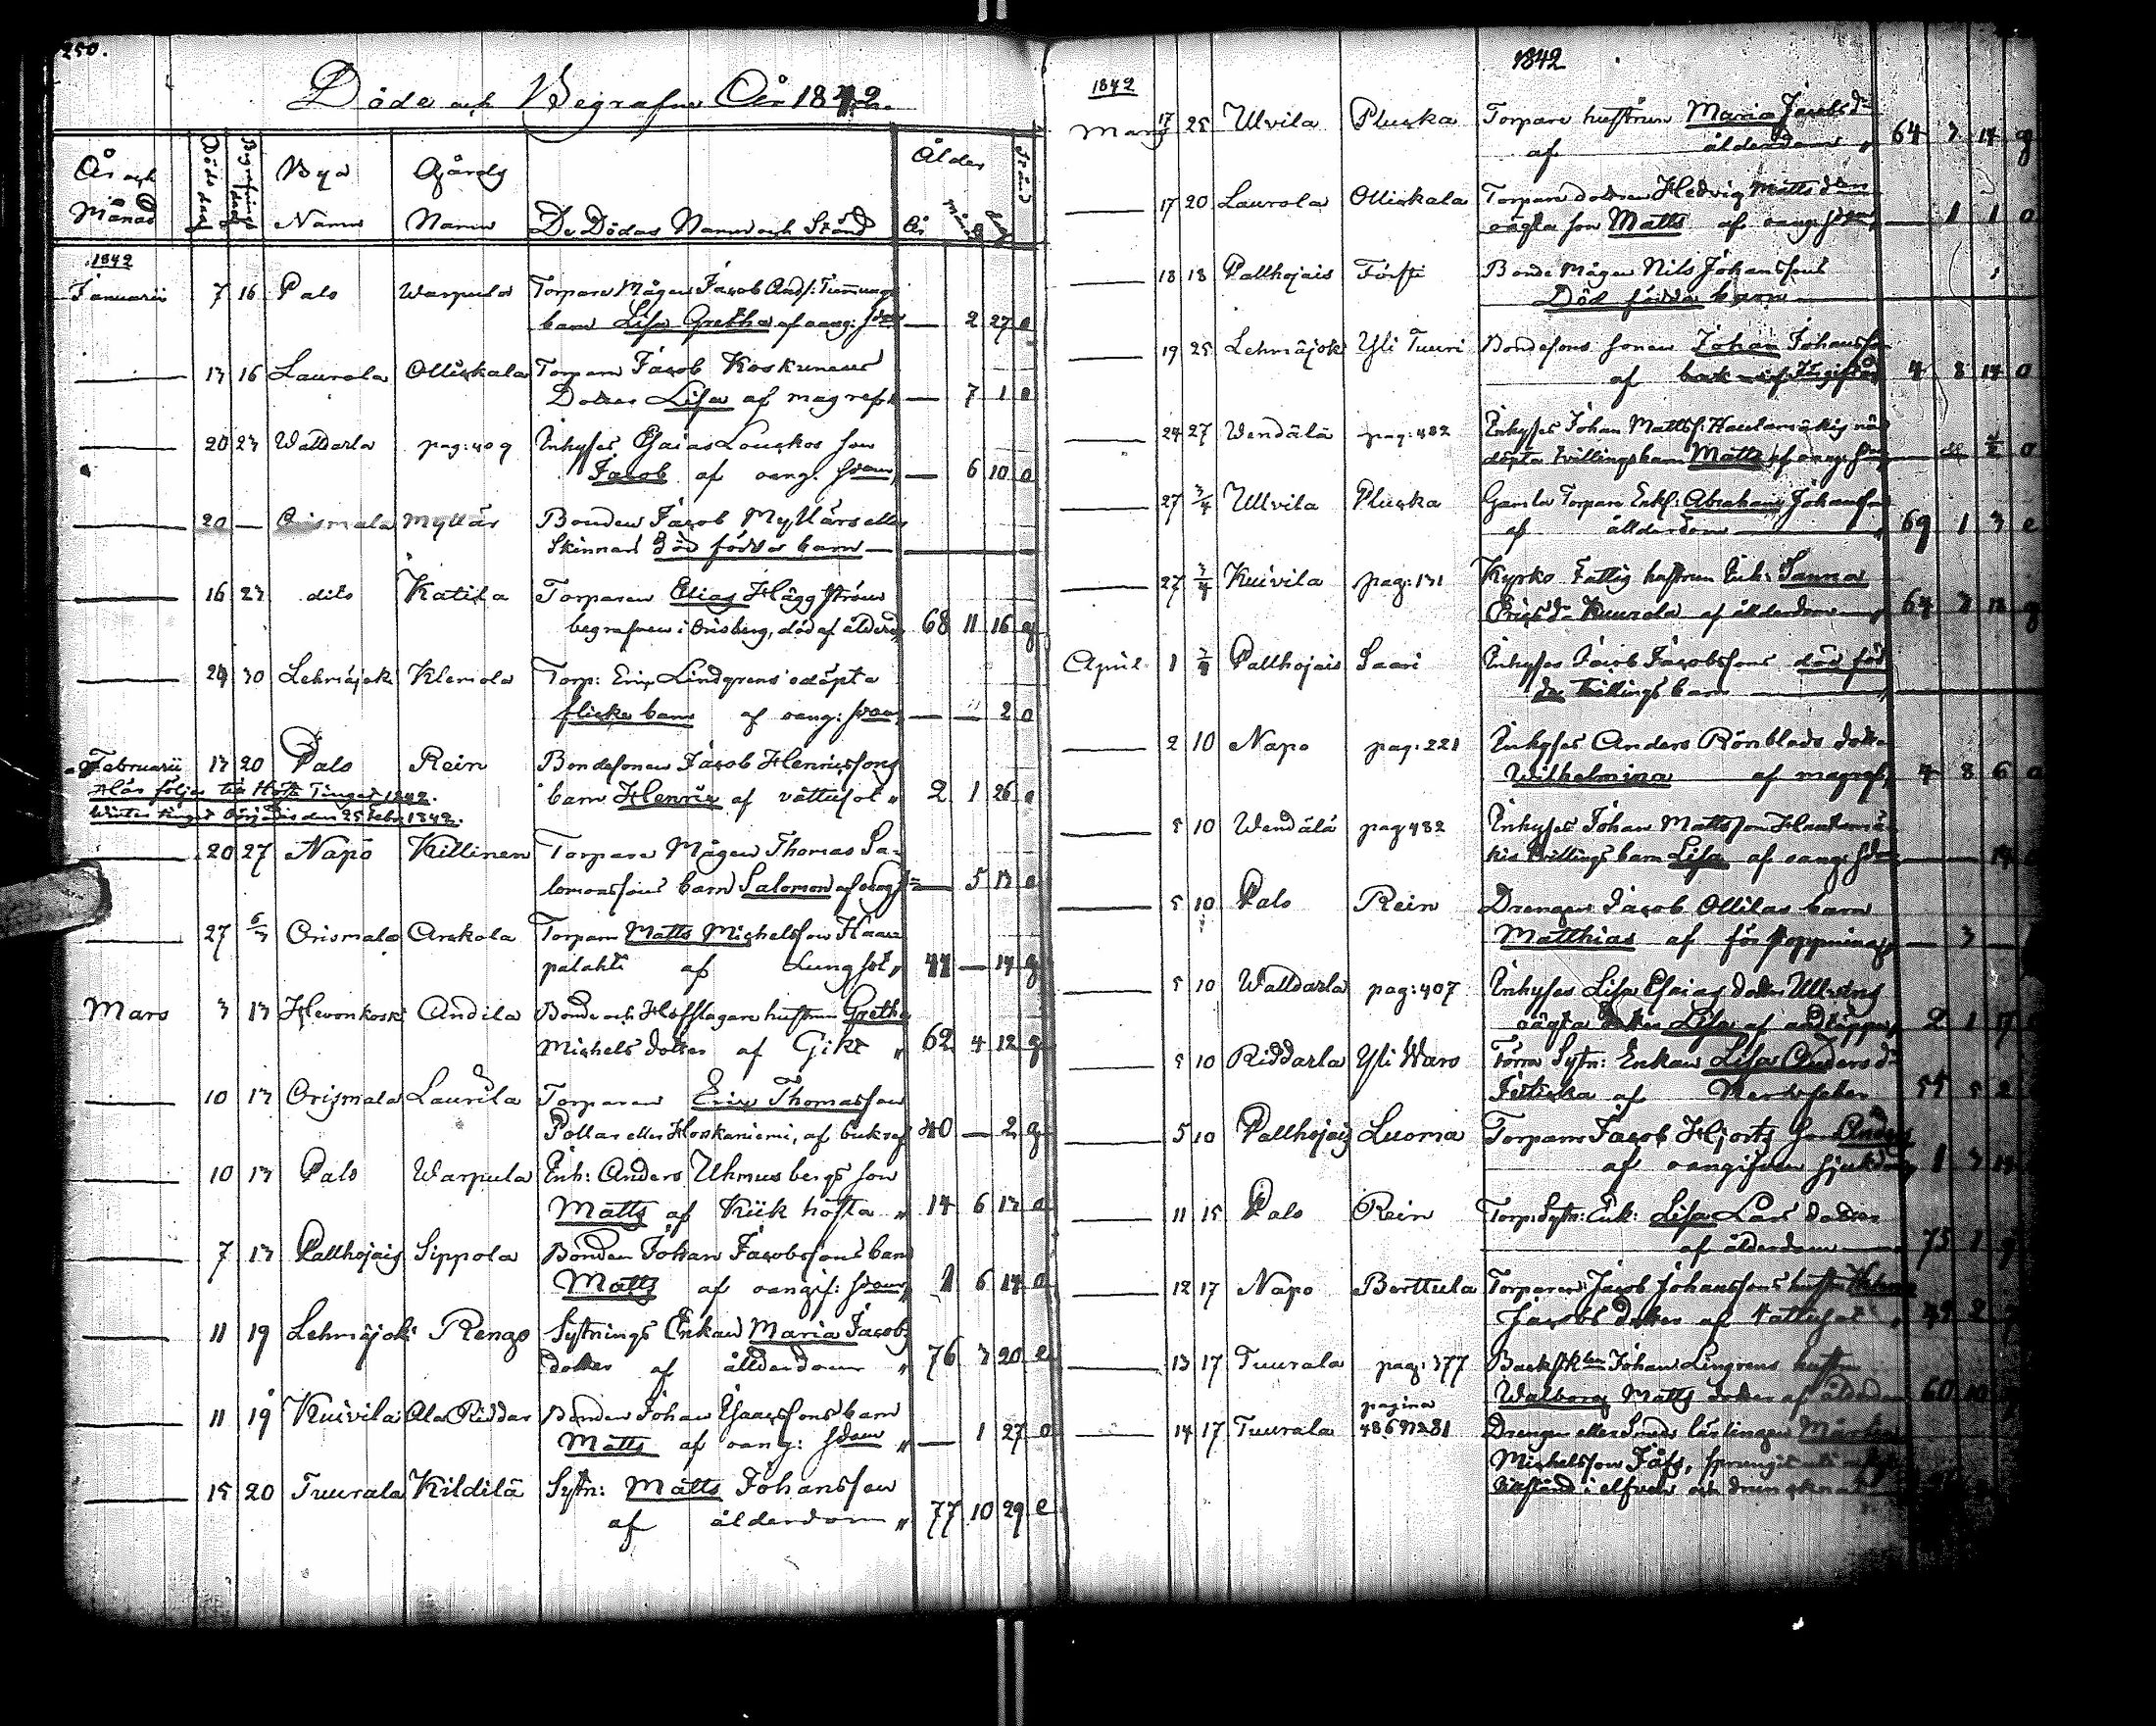 250.
Döde och Begrafne År 1842.
År och Månad Döds dag Begrafnings dag Bya Namn Gårds Namn De Dödas Namn och Stånd Ålder År Månad dag Stånd
1842
Januarii 7 16 Palo Warpula Torpare Mågen Jacob Ands:
barn Lisa Gretha af oang: sjdom — 2 27 o
— 13 16 Laurola Ollikkala Torparn Jacob Koskinens
Dotter Lisa af magref — 7 1 o
— 20 23 Waldarla pag: 409 Inhyses Esaias Louckos son
Jacob af oang. sjdom — 6 10 o
— 20 — Orismala Myllär Bonden Jacob Myllärs eller
Skinnari död födda barn —
— 16 23 dito Katila Torparen Elias Häggström
begrafven i Orisberg, död af ålderd 68 11 16 g
— 24 30 Lehmäjoki Klemola Torp: Eric Lindgrens odöpta
flicke barn af oang: sjdom — — 2 o
Februarii 13 20 Palo Rein Bondesonen Jacob Henricssons
barn Henric af vattusot 2 1 26 o
Här följer till Höste Tinget 1842.
Winter tinget börjades den 25 Febr. 1842.
— 20 27 Napo Killinen Torpare Mågen Thomas Sa-
lomonssons barn Salomon af oang — 5 13 o
— 27 6/3 Orismala Arkola Torparn Matts Michelsson Haara
palahti af Lungsot 44 — 14 g
Mars 3 13 Hevonkoski Andila Bonde och Hofslagare hustrun Gretha
Michels dotter af Gikt 62 4 12 g
— 10 13 Orismala Laurila Torparen Eric Thomasson
Pollari eller Koskaniemi, af bukref 40 — 2 g
— 10 13 Palo Warpula Inh: Anders Uhmusbergs son
Matts af Kikhosta 14 6 13 o
— 7 13 Pallhojais Sippola Bonden Johan Jacobssons barn
Matts af oangif: sjdom 1 6 14 o
— 11 19 Lehmäjoki Rengo Sytnings Enkan Maria Jacobs
dotter af ålderdom 76 3 20 e
— 11 19 Kuivila Ala Riddar Bonden Johan Isaacssons barn
Matts af oang: sjdom — 1 27 o
— 15 20 Tuurala Kildilä Sytn: Matts Johansson
af ålderdom 77 10 29 e
1842
1842
Mars 17 25 Ulvila Pluska Torpare hustrun Maria Jacobs dr
af ålderdom 64 3 14 g
— 17 20 Laurola Ollikkala Torpare dottren Hedvig Matts dtrs
oägta son Matts af oang: sjdom — 1 1 o
— 18 18 Pallhojais Bonde Mågen Nils Johanssons
Död födda barn —
— 19 25 Lehmäjoki Yli Tuuri Bondesons sonen Johan Johansson
af 4 8 14 o
— 24 27 Wendälä pag: 482 Inhyses Johan Mattss:
döpta tvillingbarn Matts af oang: o
— 27 3/4 Ullvila Pluska Gamla Torpare Enkl: Abraham Johansson
af ålderdom — 69 1 3 e
— 27 3/4 Kuivila pag: 131 Kyrko Fattig hustrun Enk: Sanna
Erics dr Kuurola af ålderdom 64 g
April 1 Pallhojais Saari Inhyses Jacob Jacobssons död föd
da tvillings barn —
— 2 10 Napo pag: 221 Inhyses Anders Rönblads dotter
Wilhelmina af magref 4 8 6 o
— 5 10 Wendälä pag 482 Inhyses Johan Mattsson
kis tvillings barn Lisa af oang: sjdom —
— 5 10 Palo Rein Drengen Jacob Ollilas barn
Matthias af förstoppning — 3 —
— 5 10 Walldarla pag: 407 Inhyses Lisa Esaias dotter
oägta dotter Lisa af 2 1 17
— 5 10 Riddarla Yli Waro Förra Sytn: Enkan Lisa Anders dr
af Nervfeber 55 5 2
— 5 10 Pallhojais Luoma Torparn Jacob Hjorts son Anders
af oangifven sjukdom 1 3 14
— 11 15 Palo Rein Torp: Sytn: Enk: Lisa Lars dotter
af ålderdom — 75 1
— 12 17 Napo Berttula Torparen Jacob Johanssons hustru
Jacobs dotter af Vattusot 49 2
— 13 17 Tuurala pag: 377 Johan Lingrens hustru
Walborg Matts dotter af ålderdom 60 10
— 14 17 Tuurala pagina 486 N:281 Drengen eller Smeds lärlingen
Michelsson
i elfven och drunknat